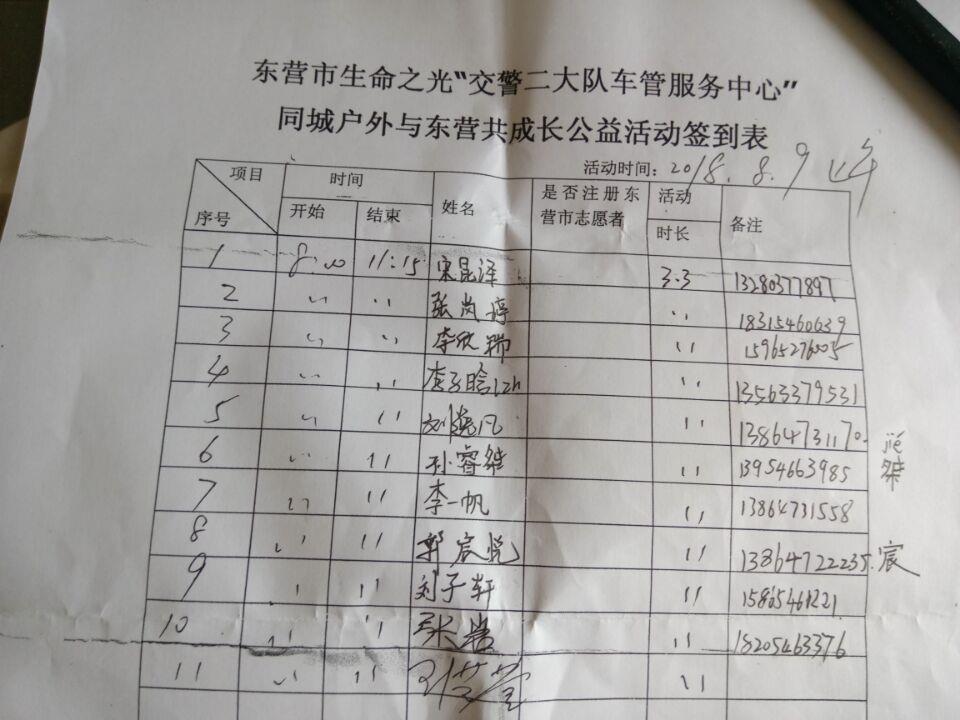 东营市生命之光“交警二大队车管服务中心”
同城户外与东营共成长公益活动签到表
活动时间：2018.8.9
项目 时间 姓名 是否注册东营市志愿者 活动时长 备注
序号 开始 结束
1 8:00 11:15 宋昆泽 3.3 13280377897
2 〃 〃 张岚婷 〃 18315460639
3 〃 〃 李欣 〃
4 〃 〃 李子晗 〃 13563379531
5 〃 〃 刘 凡 〃 13864731170
6 〃 〃 孙睿桀 〃 13954663985
桀
7 〃 〃 李一帆 〃 13864731558
8 〃 〃 郭宸悦 〃 13864722235. 宸
9 〃 〃 刘子轩 〃
10 〃 〃 张 〃 18205463376
11 〃 〃 〃